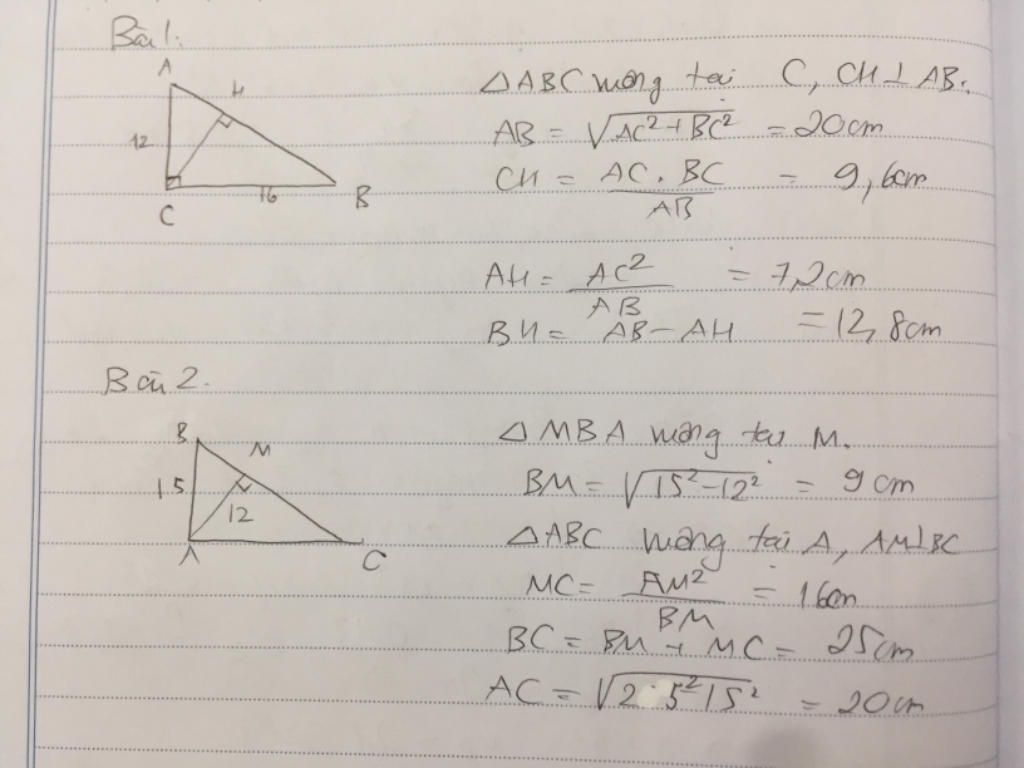 Bài 1.
A
H
12
C
16
B
△ABC vuông tại C, CH ⊥ AB.
AB = √AC²+BC² = 20cm
CH = AC . BC / AB = 9,6cm
AH = AC² / AB = 7,2cm
BH = AB - AH = 12,8cm
Bài 2.
B
M
15
12
A
C
△MBA vuông tại M.
BM = √15²-12² = 9cm
△ABC vuông tại A, AM⊥BC
MC = AM² / BM = 16cm
BC = BM + MC = 25cm
AC = √25² 15² = 20cm